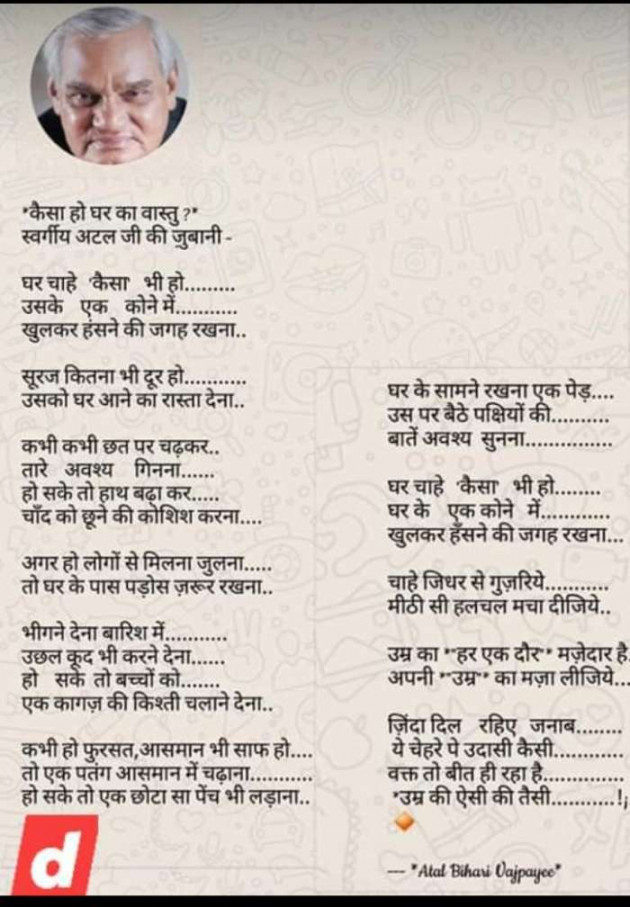 *कैसा हो घर का वास्तु ?*
स्वर्गीय अटल जी की जुबानी -
घर चाहे 'कैसा' भी हो.........
उसके एक कोने में...........
खुलकर हंसने की जगह रखना..
सूरज कितना भी दूर हो...........
उसको घर आने का रास्ता देना..
कभी कभी छत पर चढ़कर..
तारे अवश्य गिनना......
हो सके तो हाथ बढ़ा कर.....
चाँद को छूने की कोशिश करना....
अगर हो लोगों से मिलना जुलना.....
तो घर के पास पड़ोस ज़रूर रखना..
भीगने देना बारिश में...........
उछल कूद भी करने देना......
हो सके तो बच्चों को.......
एक कागज़ की किश्ती चलाने देना..
कभी हो फुरसत,आसमान भी साफ हो....
तो एक पतंग आसमान में चढ़ाना............
हो सके तो एक छोटा सा पेंच भी लड़ाना..
घर के सामने रखना एक पेड़....
उस पर बैठे पक्षियों की..........
बातें अवश्य सुनना...............
घर चाहे 'कैसा' भी हो........
घर के एक कोने में............
खुलकर हँसने की जगह रखना...
चाहे जिधर से गुज़रिये...........
मीठी सी हलचल मचा दीजिये..
उम्र का *"हर एक दौर"* मज़ेदार है.
अपनी *"उम्र"* का मज़ा लीजिये...
ज़िंदा दिल रहिए जनाब........
ये चेहरे पे उदासी कैसी............
वक्त तो बीत ही रहा है..............
*उम्र की ऐसी की तैसी...........!¡
— *Atal Bihari Vajpayee*
d